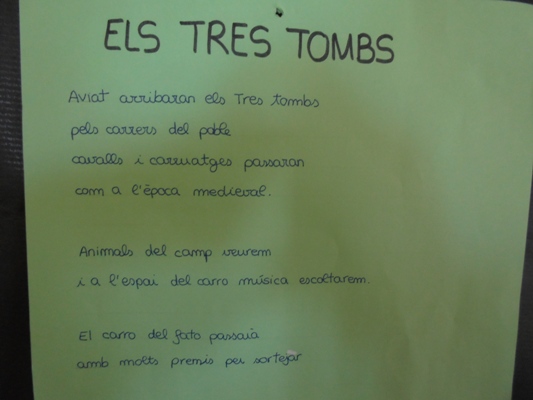 ELS TRES TOMBS
Aviat arribaran els Tres tombs
pels carrers del poble
cavalls i carruatges passaran
com a l'època medieval.
Animals del camp veurem
i a l'espai del carro música escoltarem.
El carro del fato passarà
amb molts premis per sortejar